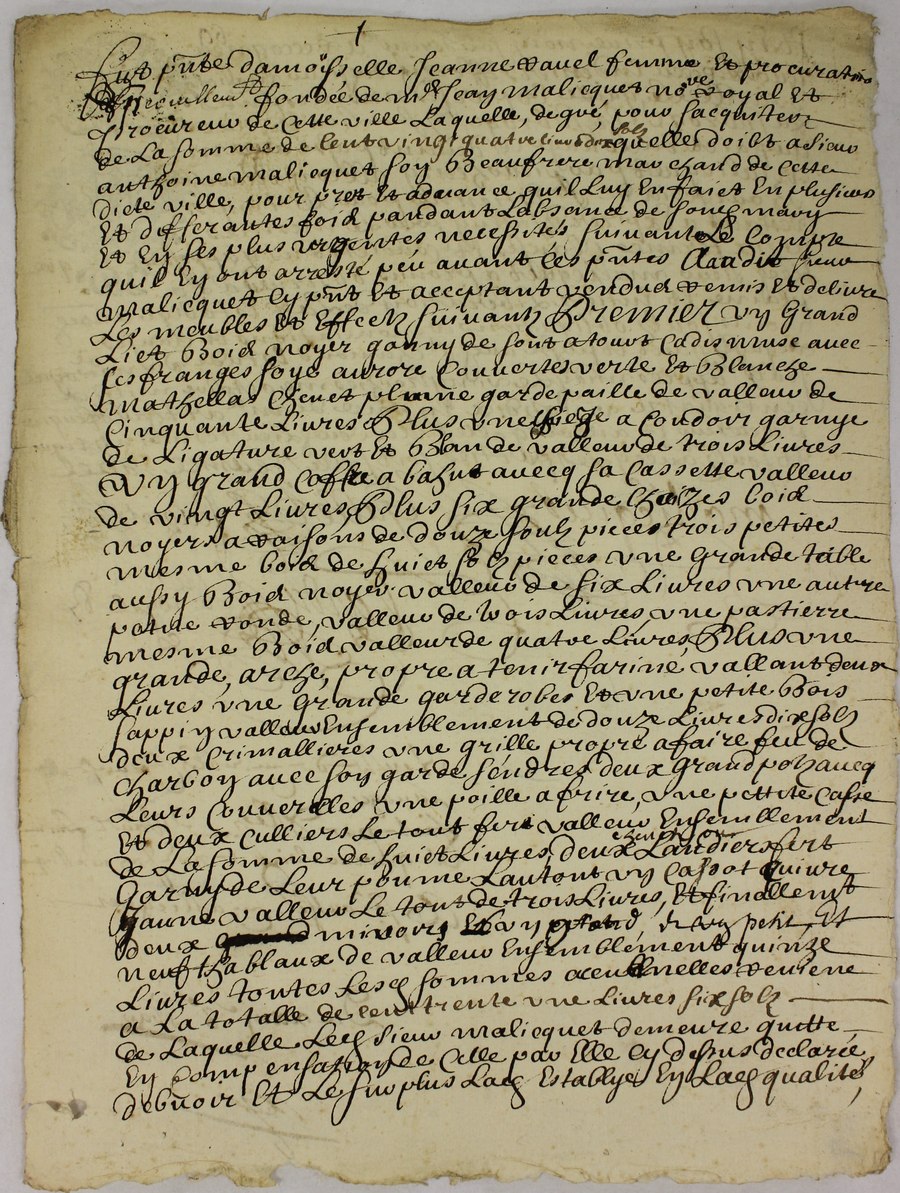 1
Fut pñte damoiselle Jeanne Ravel femme et procuratrice
fondée de mr Jean Malicquet nore Royal et
procureur de cette ville Laquelle, de gré, pour sacquiter
de La somme de cent vingt quatre livres deux solz quelle doibt a sieur
anthoine malicquet son Beaufrere marchand de cette
dicte ville, pour pret et advance quil Luy en faict En plusieurs
Et differantes foid pandant Labsance de sond mary
Et En ses plus urgentes necessités suivant Le Compte
quil En ont arresté peu avant ces pñtes A audit sieur
malicquet Cy pñt Et acceptant vendud Remis Et delivre
Les meubles Et Effectz suivantz Premier un Grand
Lict Boid noyer garny de son tatourt Cadis muse avec
ses franges soye aurore Couverte verte Et Blanche
mathellas Chevet plume garde paille de valleur de
Cinquante Livres Plus une chieze a Coudoir garnye
de Ligature vert Et Blan de valleur de trois Livres
un grand Coffre a bahut avecq sa Cassette valleur
de vingt Livres Plus six grande Chaizes boid
noyers a Raisons de douze soulz pieces trois petites
mesme boid de huict solz pieces une Grande table
aussy Boid noyer valleur de six Livres une autre
petite Ronde, valleur de trois Livres, une pastierre
mesme Boid valleur de quatre Livres, Plus une
grande, arche, propre a tenir farine vallant deux
Livres une Grande garderobes Et une petite Bois
sappin valleur Ensemblement de douze Livres dix solz
deux Crimallieres une grille propre a faire feu de
Charbon avec son garde sendres deux grand potz avecq
Leurs Couvercles une poille a frire, une pettite Casse
Et deux Culliers Le tout fert valleur Ensemblement
de La somme de huict Livres, deux Landiers fert
Garny de Leur poume Lautont un Cassot Cuivre
jaune valleur Le tout de trois Livres, Et finallemt
deux miroirs Et un grand, et un petit, Et
neuf thablaux de valleur Ensemblement quinze
Livres toutes Lesq sommes acculmelles Reviene
a La totalle de cent trente une Livres six solz
de Laquelle Led sieur malicquet demeure quitte
En Compensation de Celle par Elle Cy dessus declarée
debvoir Et Le surplus Lad Establye En Lad qualité,